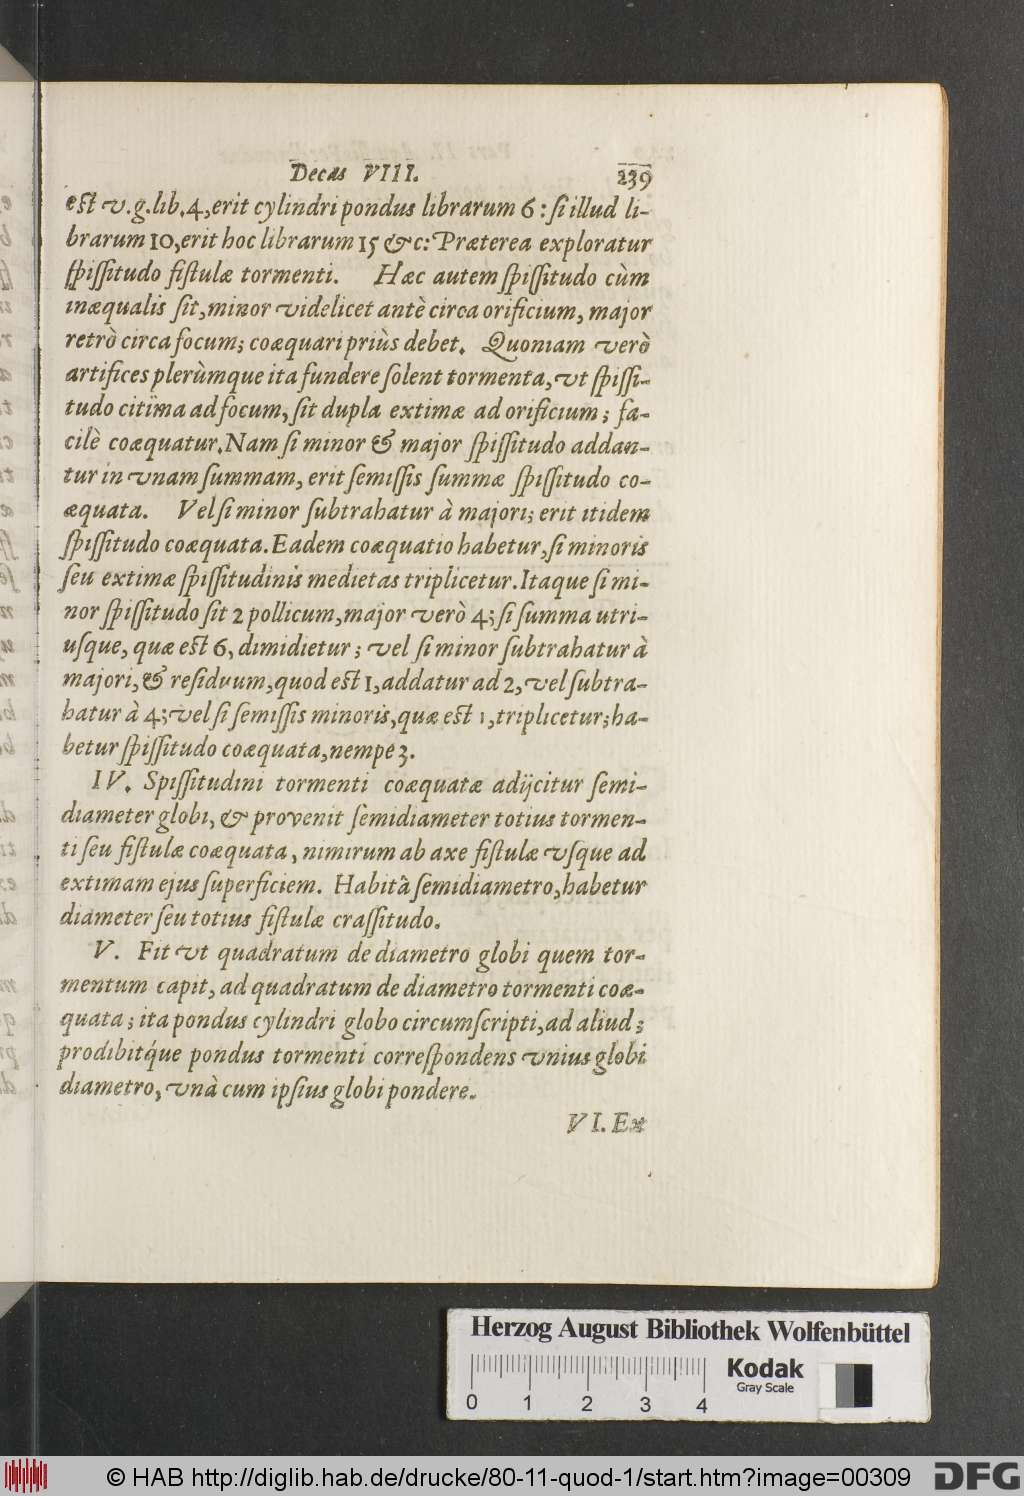 Decas VIII. 239
est v.g.lib.4,erit cylindri pondus librarum 6 : ſi illud li-
brarum 10,erit hoc librarum 15 &c: Præterea exploratur
ſpiſſitudo fiſtulæ tormenti. Hæc autem ſpiſſitudo cùm
inæqualis ſit,minor videlicet antè circa orificium, major
retrò circa focum; coæquari priùs debet. Quoniam verò
artifices plerùmque ita fundere ſolent tormenta,vt ſpiſſi-
tudo citima ad focum, ſit dupla extimæ ad orificium; fa-
cilè coæquatur.Nam ſi minor & major ſpiſſitudo addan-
tur in vnam ſummam, erit ſemiſſis ſummæ ſpiſſitudo co-
æquata. Vel ſi minor ſubtrahatur à majori; erit itidem
ſpiſſitudo coæquata.Eadem coæquatio habetur,ſi minoris
ſeu extimæ ſpiſſitudinis medietas triplicetur.Itaque ſi mi-
nor ſpiſſitudo ſit 2 pollicum,major verò 4; ſi ſumma utri-
uſque, quæ est 6, dimidietur; vel ſi minor ſubtrahatur à
majori,& reſiduum,quod est 1,addatur ad 2,vel ſubtra-
hatur à 4;vel ſi ſemiſſis minoris,quæ est 1,triplicetur;ha-
betur ſpiſſitudo coæquata,nempe 3.
IV. Spiſſitudini tormenti coæquatæ adijcitur ſemi-
diameter globi, & provenit ſemidiameter totius tormen-
ti ſeu fiſtulæ coæquata, nimirum ab axe fiſtulæ vſque ad
extimam ejus ſuperficiem. Habitâ ſemidiametro,habetur
diameter ſeu totius fiſtulæ craſſitudo.
V. Fit vt quadratum de diametro globi quem tor-
mentum capit, ad quadratum de diametro tormenti coæ-
quata; ita pondus cylindri globo circumſcripti,ad aliud;
prodibitq́ue pondus tormenti correſpondens vnius globi
diametro, vnà cum ipſius globi pondere.
VI. Ex
Herzog August Bibliothek Wolfenbüttel
0 1 2 3 4
Kodak
Gray Scale
© HAB http://diglib.hab.de/drucke/80-11-quod-1/start.htm?image=00309
DFG